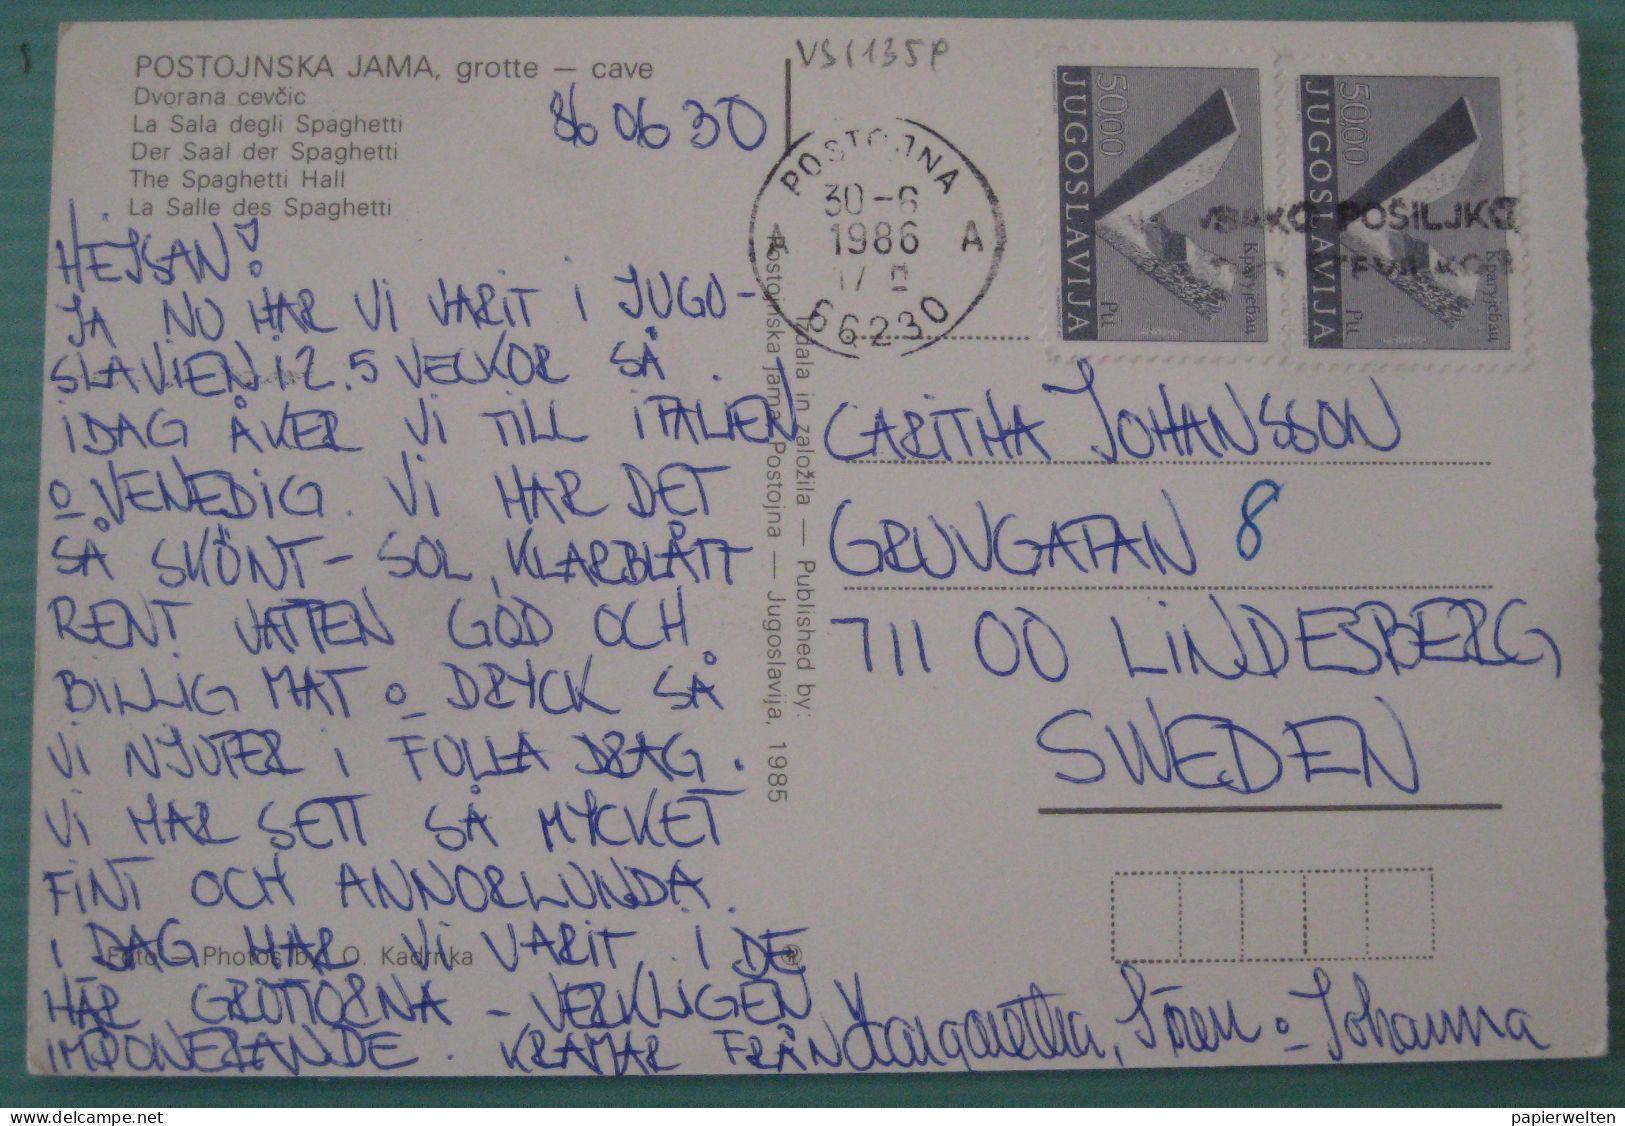 POSTOJNSKA JAMA, grotte — cave
Dvorana cevčic
La Sala degli Spaghetti
Der Saal der Spaghetti
The Spaghetti Hall
La Salle des Spaghetti
86 06 30
HEJSAN!
JA NU HAR VI VARIT I JUGO-
SLAVIEN I 2.5 VECKOR SÅ
IDAG ÅKER VI TILL ITALIEN
o VENEDIG. VI HAR DET
SÅ SKÖNT - SOL, KLARBLÅTT
RENT VATTEN GOD OCH
BILLIG MAT o DRYCK SÅ
VI NJUTER I FULLA DRAG.
VI HAR SETT SÅ MYCKET
FINT OCH ANNORLUNDA.
I DAG HAR VI VARIT I DE
HÄR GROTTORNA - VERKLIGEN
IMPONERANDE. KRAMAR FRÅN
Margaretha, Sören o Johanna
Foto — Photos by: O. Kadrnka
Izdala in založila — Published by:
Postojnska jama Postojna — Jugoslavija, 1985
VS1135P
POSTOJNA
30-6
1986
A A
66230
50,00
JUGOSLAVIJA
Крагујевац
50,00
JUGOSLAVIJA
Крагујевац
POŠILJKO
CARITHA JOHANSSON
GRUVGATAN 8
711 00 LINDESBERG
SWEDEN
delcampe.net
papierwelten